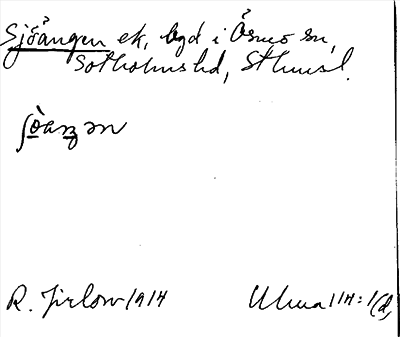 Sjöängen ek, bgd i Ösmo sn,
Sotholms hd, Sthmsl.
R. Jirlow 1914
Ulma 114:1(d)